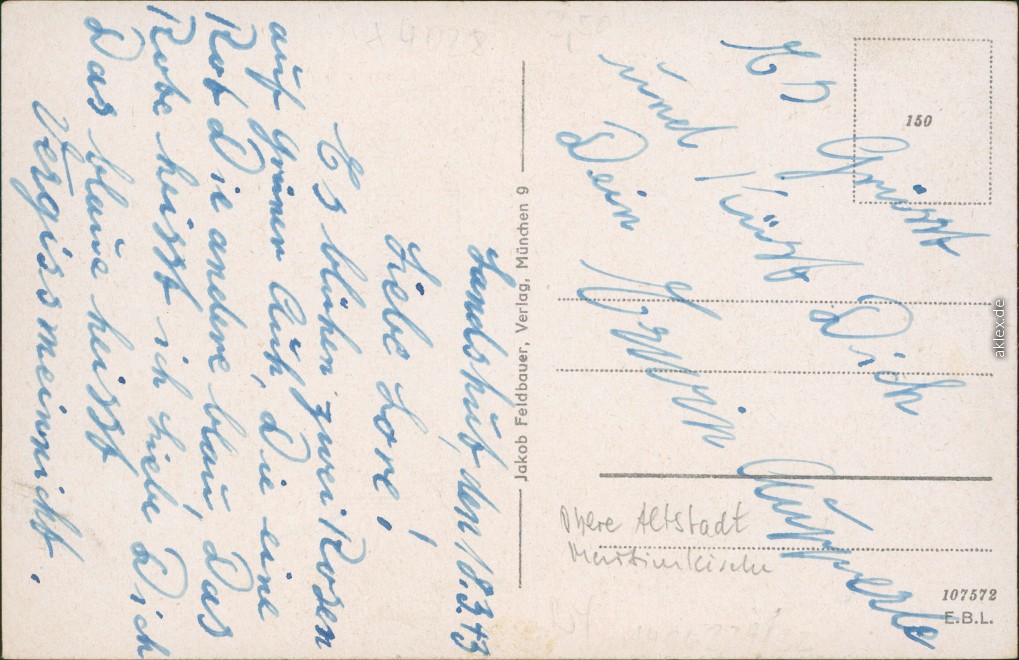 Landshut, den 18.3.43
Liebe Lore!
Es blühen zwei Rosen
auf grüner Auh, Die eine
Rot Die andere blau, Das
Rote heisst ich liebe Dich
Das blaue heisst
Vergissmeinnicht.
Es Grüsst
und Küsst Dich
Dein Erwin
Jakob Feldbauer, Verlag, München 9
150
Obere Altstadt
Martinskirche
107572
E.B.L.
aklex.de